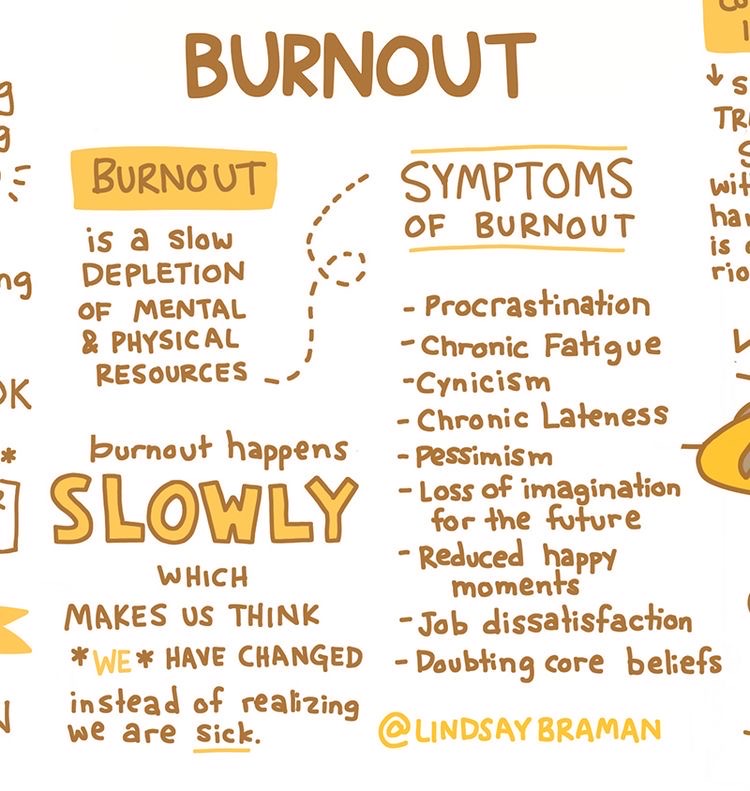 BURNOUT
BURNOUT
is a slow
DEPLETION
OF MENTAL
& PHYSICAL
RESOURCES
burnout happens
SLOWLY
WHICH
MAKES US THINK
*WE* HAVE CHANGED
instead of realizing
we are sick.
SYMPTOMS
OF BURNOUT
- Procrastination
- Chronic Fatigue
- Cynicism
- Chronic Lateness
- Pessimism
- Loss of imagination
for the future
- Reduced happy
moments
- Job dissatisfaction
- Doubting core beliefs
@LINDSAYBRAMAN